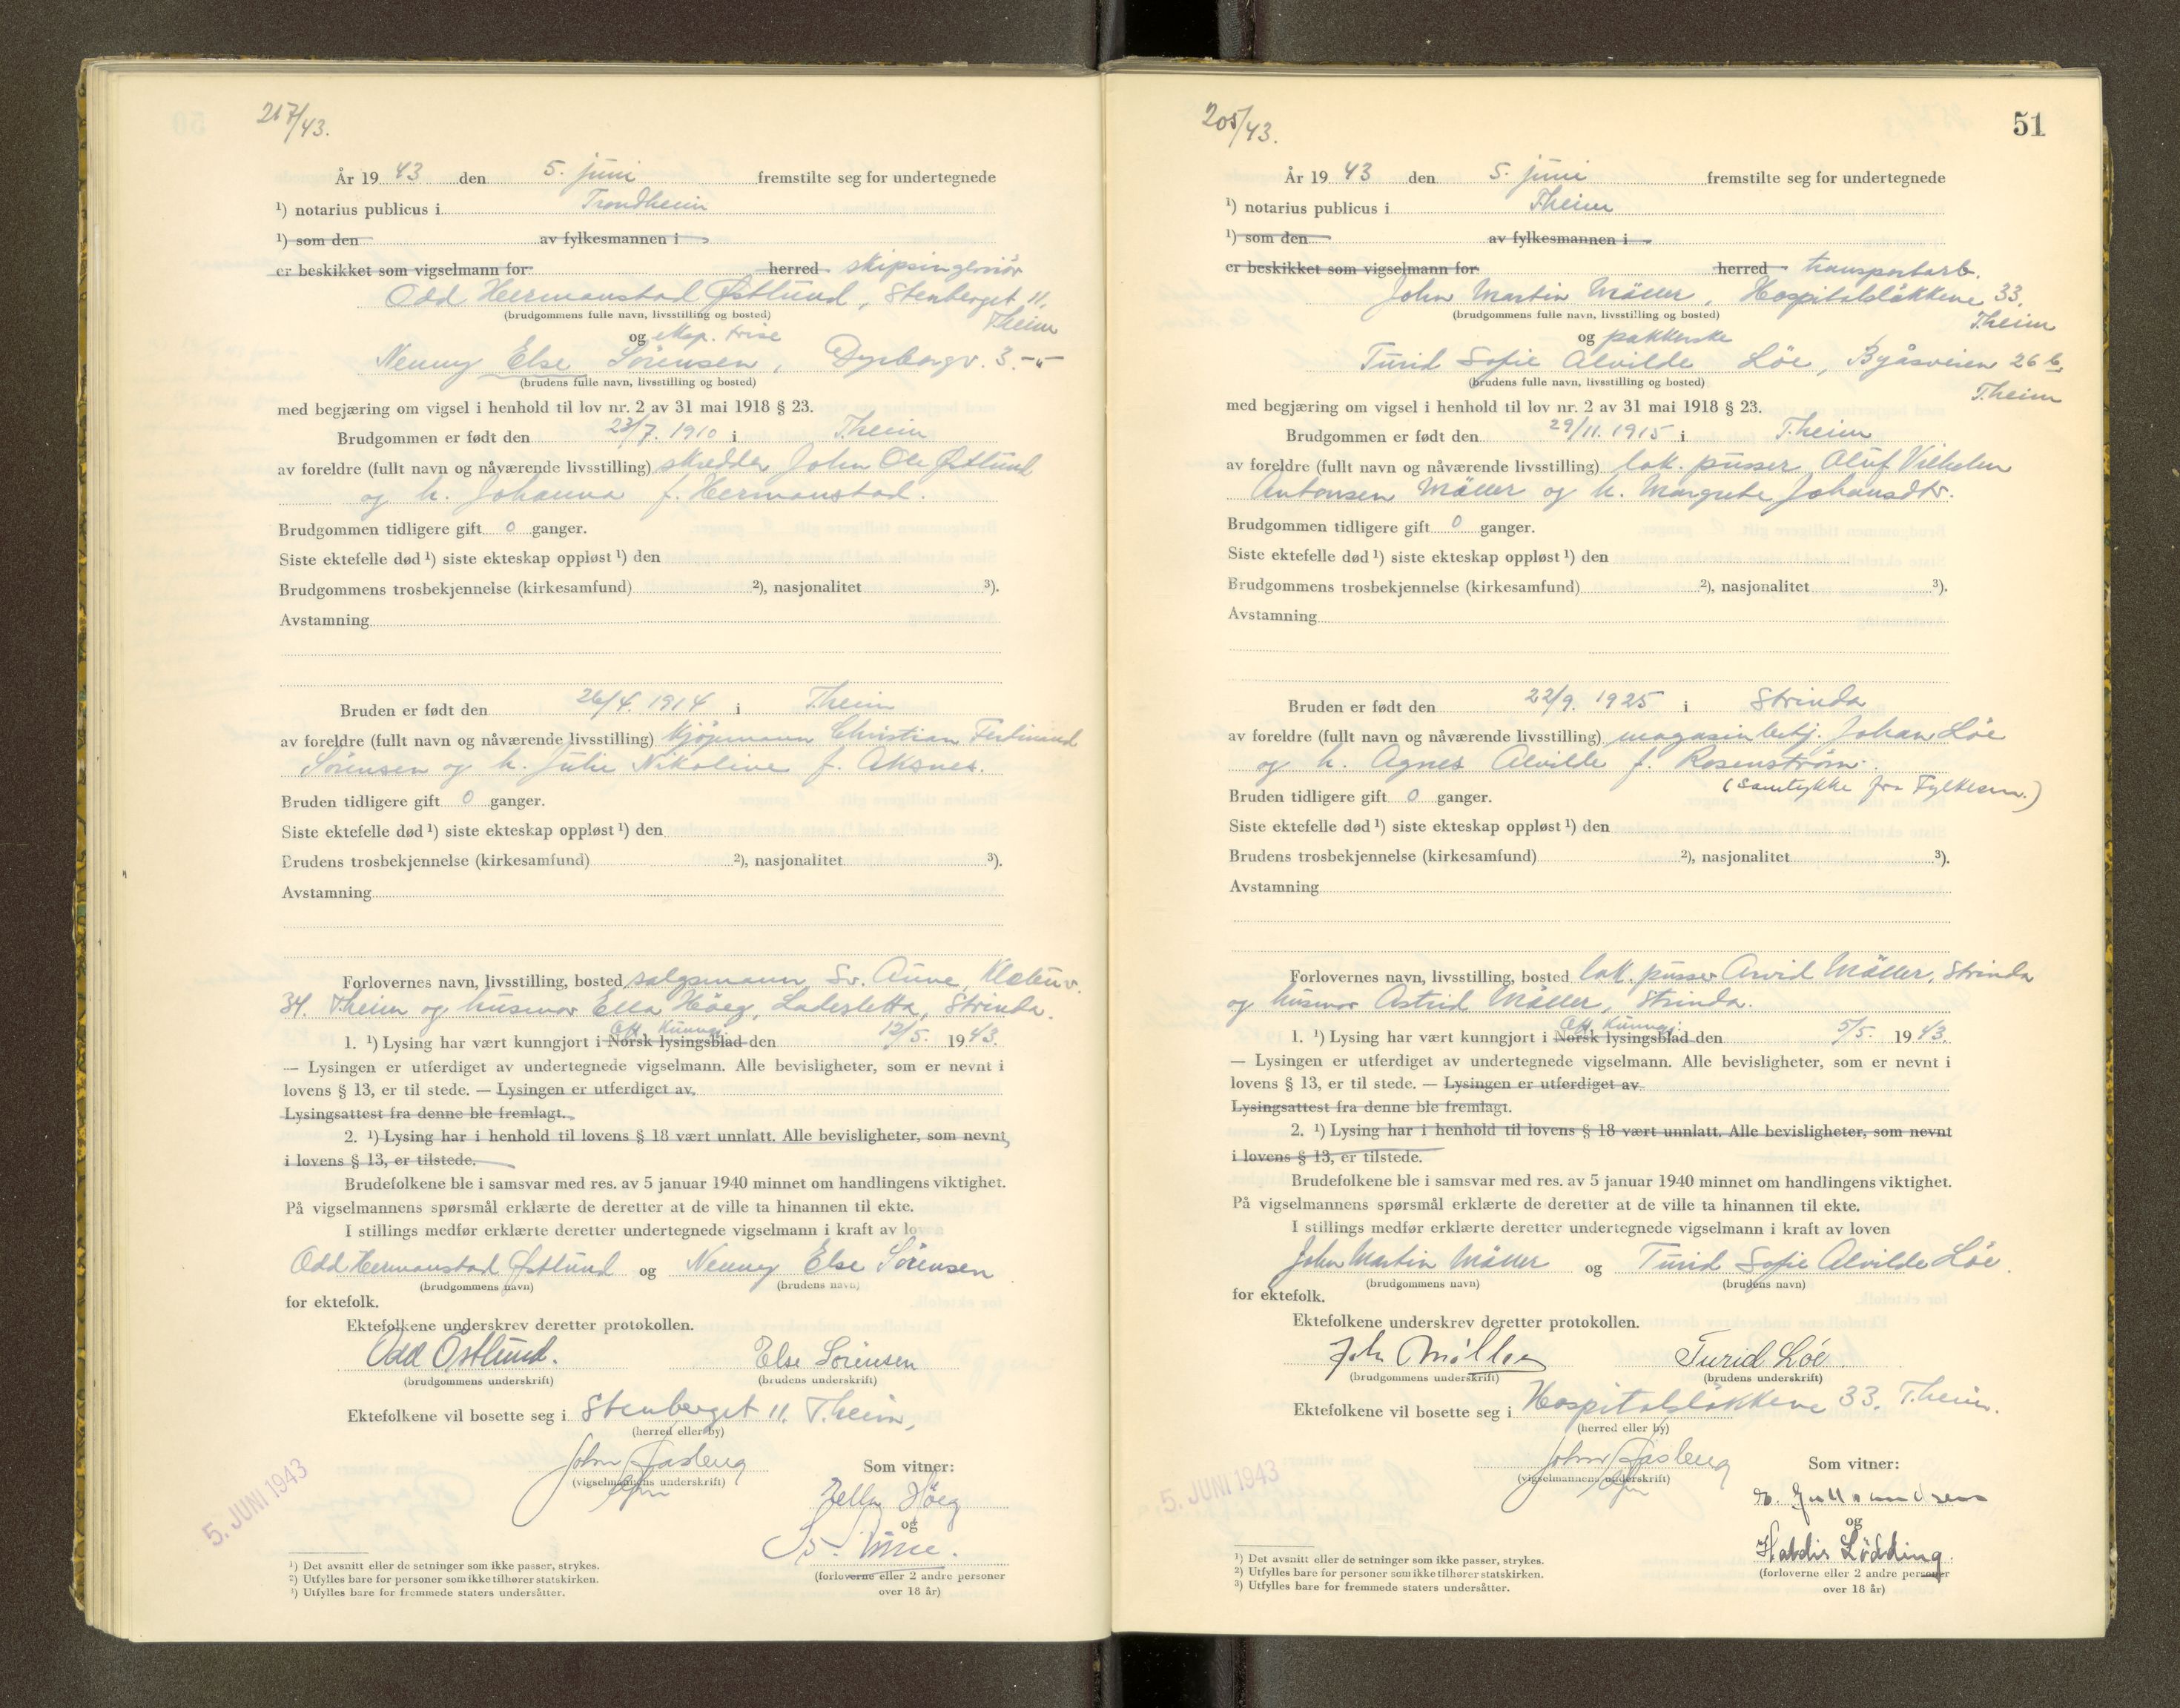 217/43.
År 19 43 den 5. juni fremstilte seg for undertegnede
¹) notarius publicus i Trondheim
¹) som den av fylkesmannen i
er beskikket som vigselmann for herred skipsingeniør
Odd Hermanstad Østlund, Stenberget 11,
(brudgommens fulle navn, livsstilling og bosted) T.heim
og eksp. trise
Nenny Else Sörensen, Dyrborgv. 3. -"-
(brudens fulle navn, livsstilling og bosted)
med begjæring om vigsel i henhold til lov nr. 2 av 31 mai 1918 § 23.
Brudgommen er født den 23/7. 1910 i T.heim
av foreldre (fullt navn og nåværende livsstilling) skredder John Ole Østlund
og h. Johanna f. Hermanstad.
Brudgommen tidligere gift 0 ganger.
Siste ektefelle død ¹) siste ekteskap oppløst ¹) den
Brudgommens trosbekjennelse (kirkesamfund) ²), nasjonalitet ³).
Avstamning
Bruden er født den 26/4. 1914 i T.heim
av foreldre (fullt navn og nåværende livsstilling) kjöpmann Christian Ferdinand
Sörensen og h. Julie Nikoline f. Aksnes.
Bruden tidligere gift 0 ganger.
Siste ektefelle død ¹) siste ekteskap oppløst ¹) den
Brudens trosbekjennelse (kirkesamfund) ²), nasjonalitet ³).
Avstamning
Forlovernes navn, livsstilling, bosted salgsmann Sv. Aune,
34. T.heim og husmor Ella Höeg, Ladesletta, Strinda.
Off. kunngj.
1. ¹) Lysing har vært kunngjort i Norsk lysingsblad den 12/5. 19 43.
— Lysingen er utferdiget av undertegnede vigselmann. Alle bevisligheter, som er nevnt i
lovens § 13, er til stede. — Lysingen er utferdiget av
Lysingsattest fra denne ble fremlagt.
2. ¹) Lysing har i henhold til lovens § 18 vært unnlatt. Alle bevisligheter, som nevnt
i lovens § 13, er tilstede.
Brudefolkene ble i samsvar med res. av 5 januar 1940 minnet om handlingens viktighet.
På vigselmannens spørsmål erklærte de deretter at de ville ta hinannen til ekte.
I stillings medfør erklærte deretter undertegnede vigselmann i kraft av loven
Odd Hermanstad Østlund og Nenny Else Sörensen
(brudgommens navn) (brudens navn)
for ektefolk.
Ektefolkene underskrev deretter protokollen.
Odd Östlund. Else Sörensen
(brudgommens underskrift) (brudens underskrift)
Ektefolkene vil bosette seg i Stenberget 11. T.heim,
(herred eller by)
John
(vigselmannens underskrift)
Som vitner:
Höeg
og
Sv. Aune.
(forloverne eller 2 andre personer
over 18 år)
5. JUNI 1943
¹) Det avsnitt eller de setninger som ikke passer, strykes.
²) Utfylles bare for personer som ikke tilhører statskirken.
³) Utfylles bare for fremmede staters undersåtter.
205/43.
51
År 19 43 den 5. juni fremstilte seg for undertegnede
¹) notarius publicus i T.heim
¹) som den av fylkesmannen i
er beskikket som vigselmann for herred transportarb.
John Martin Möller, Hospitalslökkene 33.
(brudgommens fulle navn, livsstilling og bosted) T.heim
og pakkerske
Turid Sofie Alvilde Löe, Byåsveien 26 b,
(brudens fulle navn, livsstilling og bosted) T.heim
med begjæring om vigsel i henhold til lov nr. 2 av 31 mai 1918 § 23.
Brudgommen er født den 29/11. 1915 i T.heim
av foreldre (fullt navn og nåværende livsstilling) lok. pusser Oluf Vilhelm
Antonsen Möller og h. Margrete Johansdtr.
Brudgommen tidligere gift 0 ganger.
Siste ektefelle død ¹) siste ekteskap oppløst ¹) den
Brudgommens trosbekjennelse (kirkesamfund) ²), nasjonalitet ³).
Avstamning
Bruden er født den 22/9. 1925 i Strinda
av foreldre (fullt navn og nåværende livsstilling) magasinbetj. Johan Löe
og h. Agnes Alvilde f. Rosenström.
(Samtykke fra Fylkesm.)
Bruden tidligere gift 0 ganger.
Siste ektefelle død ¹) siste ekteskap oppløst ¹) den
Brudens trosbekjennelse (kirkesamfund) ²), nasjonalitet ³).
Avstamning
Forlovernes navn, livsstilling, bosted lok. pusser Arvid Möller, Strinda
og husmor Astrid Möller, Strinda.
Off. kunngj.
1. ¹) Lysing har vært kunngjort i Norsk lysingsblad den 5/5. 19 43.
— Lysingen er utferdiget av undertegnede vigselmann. Alle bevisligheter, som er nevnt i
lovens § 13, er til stede. — Lysingen er utferdiget av
Lysingsattest fra denne ble fremlagt.
2. ¹) Lysing har i henhold til lovens § 18 vært unnlatt. Alle bevisligheter, som nevnt
i lovens § 13, er tilstede.
Brudefolkene ble i samsvar med res. av 5 januar 1940 minnet om handlingens viktighet.
På vigselmannens spørsmål erklærte de deretter at de ville ta hinannen til ekte.
I stillings medfør erklærte deretter undertegnede vigselmann i kraft av loven
John Martin Möller og Turid Sofie Alvilde Löe.
(brudgommens navn) (brudens navn)
for ektefolk.
Ektefolkene underskrev deretter protokollen.
Joh Möller Turid Löe.
(brudgommens underskrift) (brudens underskrift)
Ektefolkene vil bosette seg i Hospitalslökkene 33. T.heim.
(herred eller by)
John
(vigselmannens underskrift)
Som vitner:
og
Haldis Lödding.
(forloverne eller 2 andre personer
over 18 år)
5. JUNI 1943
¹) Det avsnitt eller de setninger som ikke passer, strykes.
²) Utfylles bare for personer som ikke tilhører statskirken.
³) Utfylles bare for fremmede staters undersåtter.